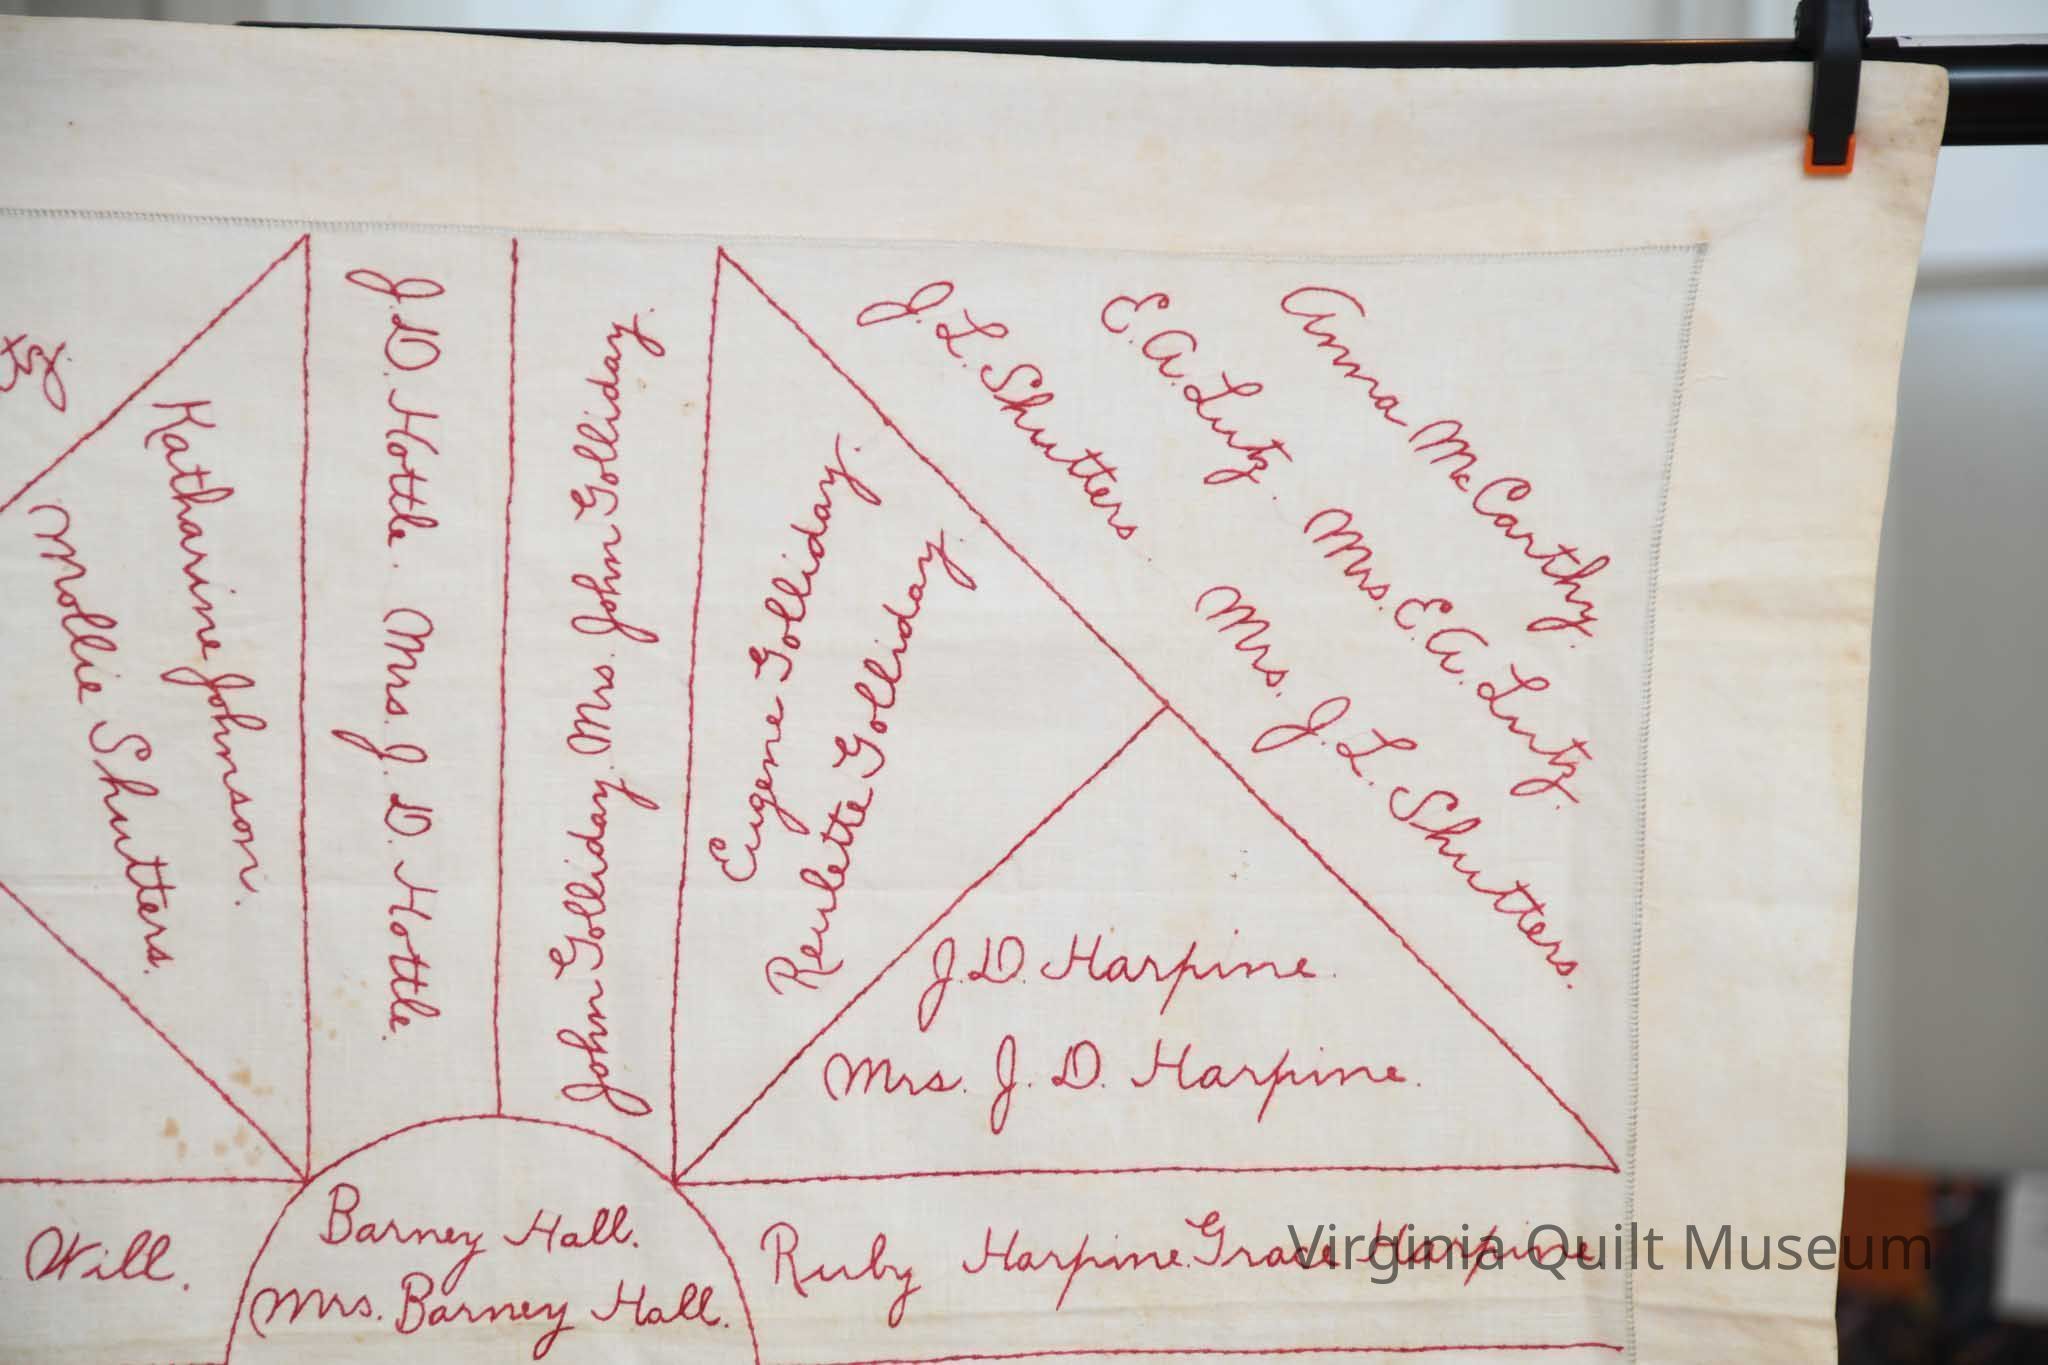 Katharine Johnson.
Mollie Shutters.
J. D. Hottle. Mrs. J. D. Hottle.
John Golliday. Mrs. John Golliday.
Eugene Golliday.
Reulette Golliday.
Anna McCarthy.
E. A. Lutz. Mrs. E. A. Lutz.
J. L. Shutters. Mrs. J. L. Shutters.
J. D. Harpine.
Mrs. J. D. Harpine.
Will.
Barney Hall.
Mrs. Barney Hall.
Ruby Harpine. Grace Harpine
Virginia Quilt Museum